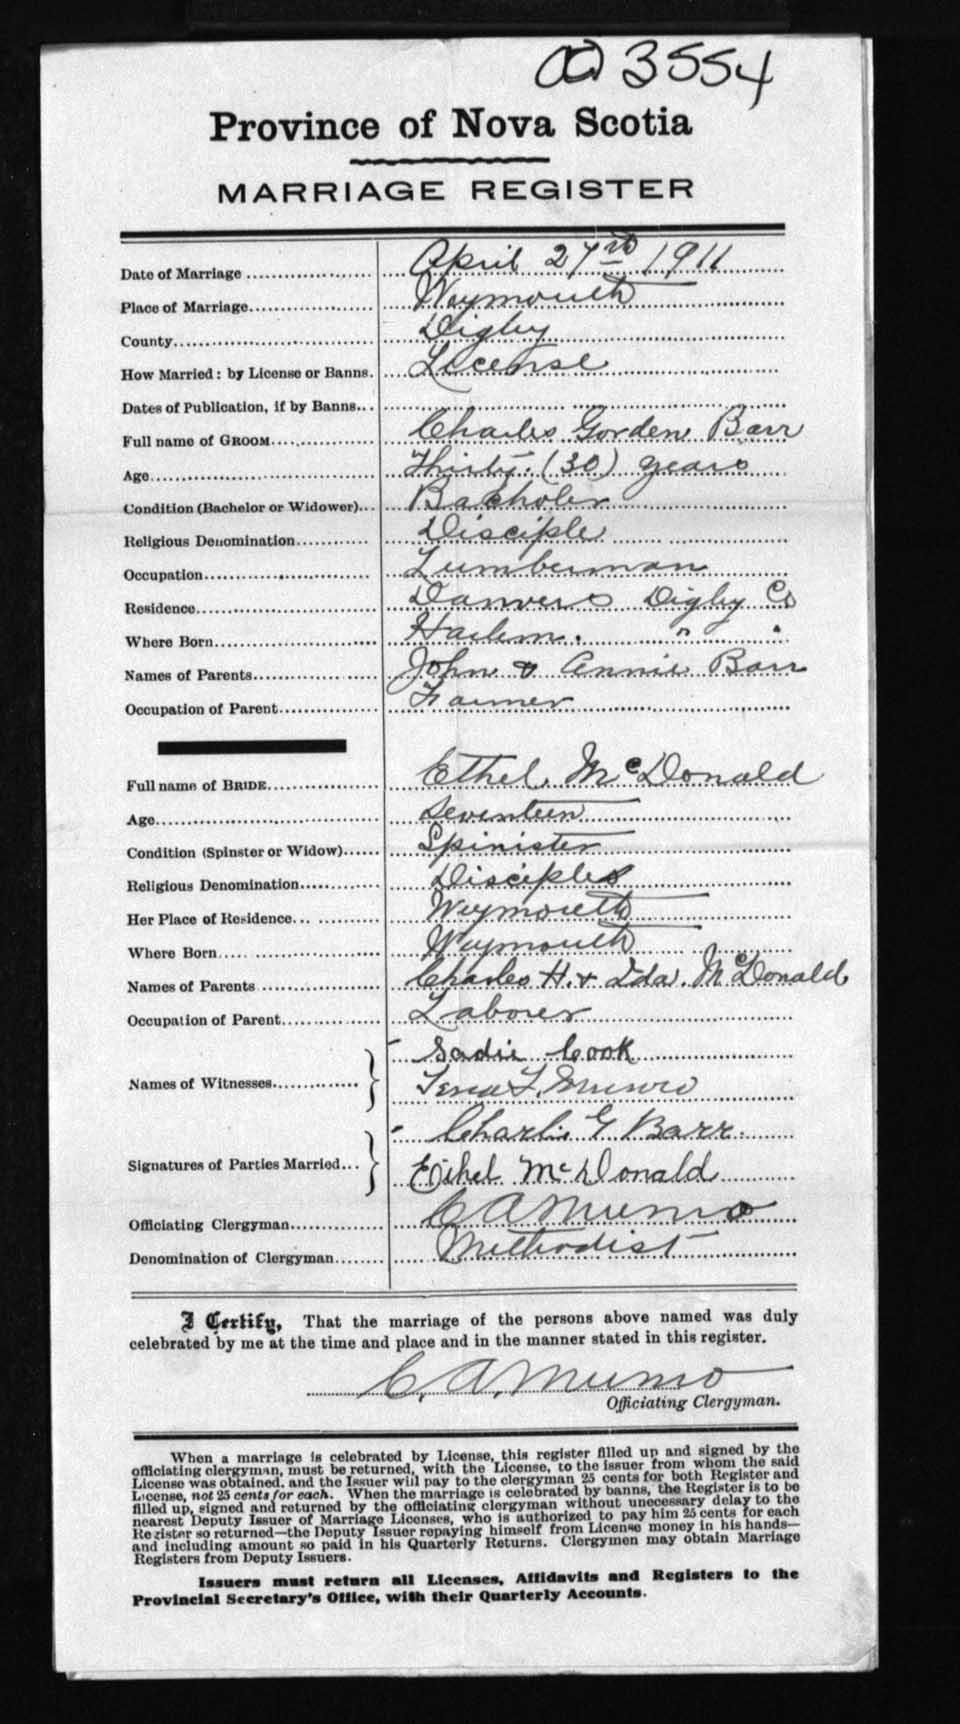 3554
Province of Nova Scotia
MARRIAGE REGISTER
Date of Marriage April 27th 1911
Place of Marriage Weymouth
County Digby
How Married: by License or Banns. License
Dates of Publication, if by Banns
Full name of GROOM Charles Gorden Barr
Age Thirty (30) years
Condition (Bachelor or Widower) Bacholer
Religious Denomination Disciple
Occupation Lumberman
Residence Danvers Digby Co
Where Born Harlem. " "
Names of Parents John & Annie Barr
Occupation of Parent Farmer
Full name of BRIDE Ethel McDonald
Age Seventeen
Condition (Spinster or Widow) Spinister
Religious Denomination Disciples
Her Place of Residence Weymouth
Where Born Weymouth
Names of Parents Charles H. & Ida. McDonald
Occupation of Parent Laborer
Names of Witnesses Sadie Cook
F. Munro
Signatures of Parties Married Charlie G Barr.
Ethel McDonald
Officiating Clergyman C A Munro
Denomination of Clergyman Methodist
I Certify, That the marriage of the persons above named was duly
celebrated by me at the time and place and in the manner stated in this register.
C. A. Munro
Officiating Clergyman.
When a marriage is celebrated by License, this register filled up and signed by the
officiating clergyman, must be returned, with the License, to the issuer from whom the said
License was obtained, and the Issuer will pay to the clergyman 25 cents for both Register and
License, not 25 cents for each. When the marriage is celebrated by banns, the Register is to be
filled up, signed and returned by the officiating clergyman without unnecessary delay to the
nearest Deputy Issuer of Marriage Licenses, who is authorized to pay him 25 cents for each
Register so returned—the Deputy Issuer repaying himself from License money in his hands—
and including amount so paid in his Quarterly Returns. Clergymen may obtain Marriage
Registers from Deputy Issuers.
Issuers must return all Licenses, Affidavits and Registers to the
Provincial Secretary's Office, with their Quarterly Accounts.